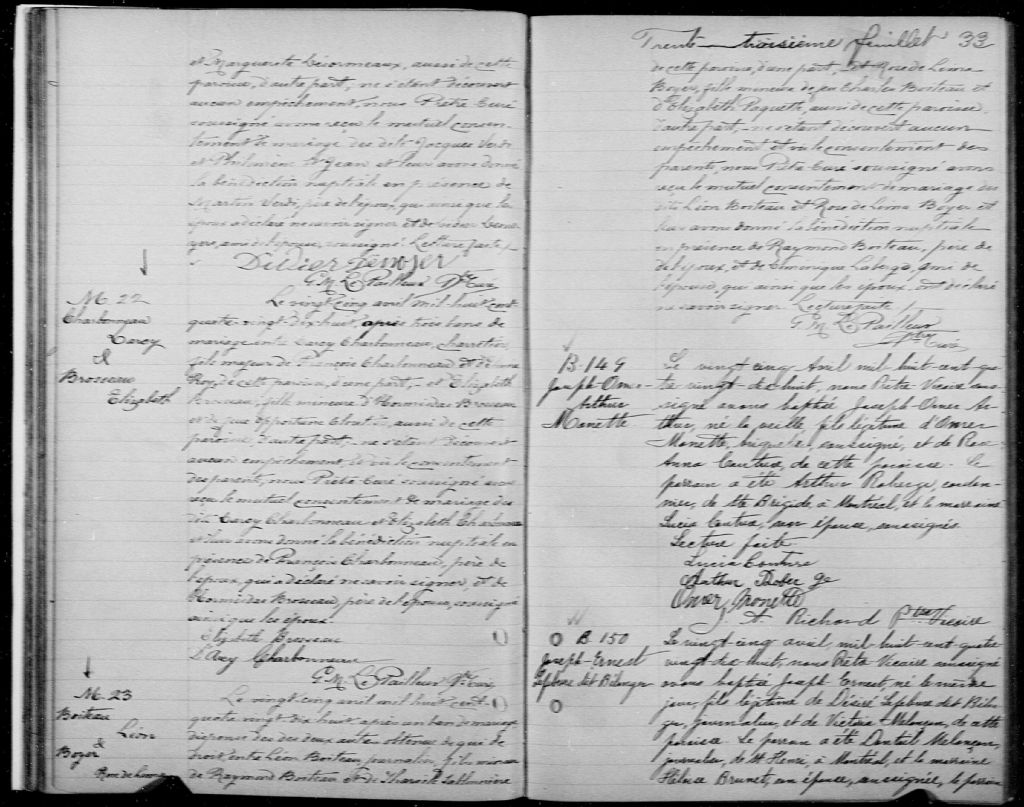 et Marguerite Désormeaux, aussi de cette
paroisse, d'autre part, ne s'étant découvert
aucun empêchement, nous Prêtre Curé
soussigné avons reçu le mutuel consen-
tement de mariage des dits Jacques Verdi
et Philomène St Jean et leur avons donné
la bénédiction nuptiale en présence de
Martin Verdi, père de l'époux, qui ainsi que les
époux a déclaré ne savoir signer et de
ami de l'épouse, soussigné. Lecture faite
Didier
G. M. LePailleur Ptre Curé
M. 22
Charbonneau
Darcy
&
Brosseau
Elizabeth
Le vingt cinq avril mil huit cent
quatre-vingt dix huit, après trois bans de
mariage entre Darcy Charbonneau, charretier,
fils majeur de François Charbonneau et
Roy, de cette paroisse, d'une part, et Elizabeth
Brosseau, fille mineure d'Hormidas Brosseau
et de aussi de cette
paroisse, d'autre part, ne s'étant découvert
aucun empêchement, et vu le consentement
des parents, nous Prêtre Curé soussigné avons
reçu le mutuel consentement de mariage des
dits Darcy Charbonneau et Elizabeth
et leur avons donné la bénédiction nuptiale en
présence de François Charbonneau, père de
l'époux, qui a déclaré ne savoir signer, et de
Hormidas Brosseau, père de l'épouse, soussigné
ainsi que les époux.
Elizabeth Brosseau
Charbonneau
G. M. LePailleur Ptre Curé
M. 23
Boiteau
Léon
&
Boyer
Rose de Lima
Le vingt cinq avril mil huit cent
quatre vingt dix huit après un ban de mariage
dispense des deux autres obtenue de qui de
droit, entre Léon Boiteau, journalier, fils mineur
de Raymond Boiteau et de
Trente-troisième feuillet 33
de cette paroisse, d'une part, et Rose de Lima
Boyer, fille mineure de feu Charles et
d'Elizabeth Paquette, aussi de cette paroisse
d'autre part, ne s'étant découvert aucun
empêchement et vu le consentement des
parents, nous Prêtre Curé soussigné avons
reçu le mutuel consentement de mariage des
dits Léon Boiteau et Rose de Lima Boyer et
leur avons donné la bénédiction nuptiale
en présence de Raymond Boiteau, père de
de l'époux, et de Laberge, ami de
l'épouse, qui ainsi que les époux, ont déclaré
ne savoir signer. Lecture faite
G. M. LePailleur
Ptre Curé
B. 149
Joseph-Omer-
Arthur
Monette
Le vingt cinq Avril mil huit cent qua-
tre vingt dix huit, nous Prêtre Vicaire sous-
signé avons baptisé Joseph Omer Ar-
thur, né la veille, fils légitime d'Omer
Monette, soussigné, et de Rose
Anna Couture, de cette paroisse. Le
parrain a été Arthur Roberge, cordon-
nier, de Ste Brigide, à Montréal, et la marraine
Lucia Couture, son épouse, soussignés
Lecture faite
Lucia Couture
Arthur Roberge
Omer Monette
A. Richard Ptre Vicaire
B. 150
Joseph-Ernest
Lefebvre dit Bélanger
Le vingt cinq avril, mil huit cent quatre
vingt dix huit, nous Prêtre Vicaire soussigné
avons baptisé Joseph Ernest, né le même
jour, fils légitime de Désiré Lefebvre dit Bélan-
ger, journalier, et de Victoria Melançon, de cette
paroisse. Le parrain a été Melançon,
journalier, de St Henri, à Montréal, et la marraine
Héloïse Brunet, son épouse, soussignée, le parrain